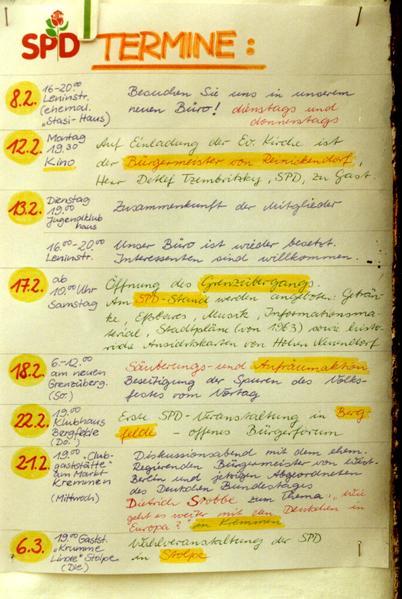 SPD TERMINE:
8.2. 16-20.00 Leninstr. (ehemal. "Stasi-Haus)
Besuchen Sie uns in unserem
neuen Büro! dienstags und
donnerstags
12.2. Montag 19.30 Kino
Auf Einladung der Ev. Kirche ist
der Bürgermeister von Reinickendorf,
Herr Detlef Dzembritzky, SPD, zu Gast.
13.2. Dienstag 19.00 Jugendklubhaus
Zusammenkunft der Mitglieder
16.00-20.00 Leninstr.
Unser Büro ist wieder besetzt.
Interessenten sind willkommen.
17.2. ab 10.00 Uhr Samstag
Öffnung des Grenzübergangs!
Am SPD-Stand werden angeboten: Geträn-
ke, Eßbares, Musik, Informationsma-
terial, Stadtpläne (von 1963) sowie histo-
rische Ansichtskarten von Hohen Neuendorf
18.2. 6-12.00 am neuen Grenzüberg. (So.)
Säuberungs- und Aufräumaktion
Beseitigung der Spuren des Volks-
festes vom Vortag
22.2. 19.00 Klubhaus Bergfelde (Do.)
Erste SPD-Veranstaltung in Berg-
felde - offenes Bürgerforum
21.2. 19.00 "Club-gaststätte" am Markt Kremmen (Mittwoch)
Diskussionsabend mit dem ehem.
Regierenden Bürgermeister von West-
Berlin und jetzigen Abgeordneten
des Deutschen Bundestages
Dietrich Stobbe zum Thema: "Wie
geht es weiter mit den Deutschen in
Europa?" in Kremmen
6.3. 19.00 Gastst. "Krumme Linde" Stolpe (Die.)
Wahlveranstaltung der SPD
in Stolpe